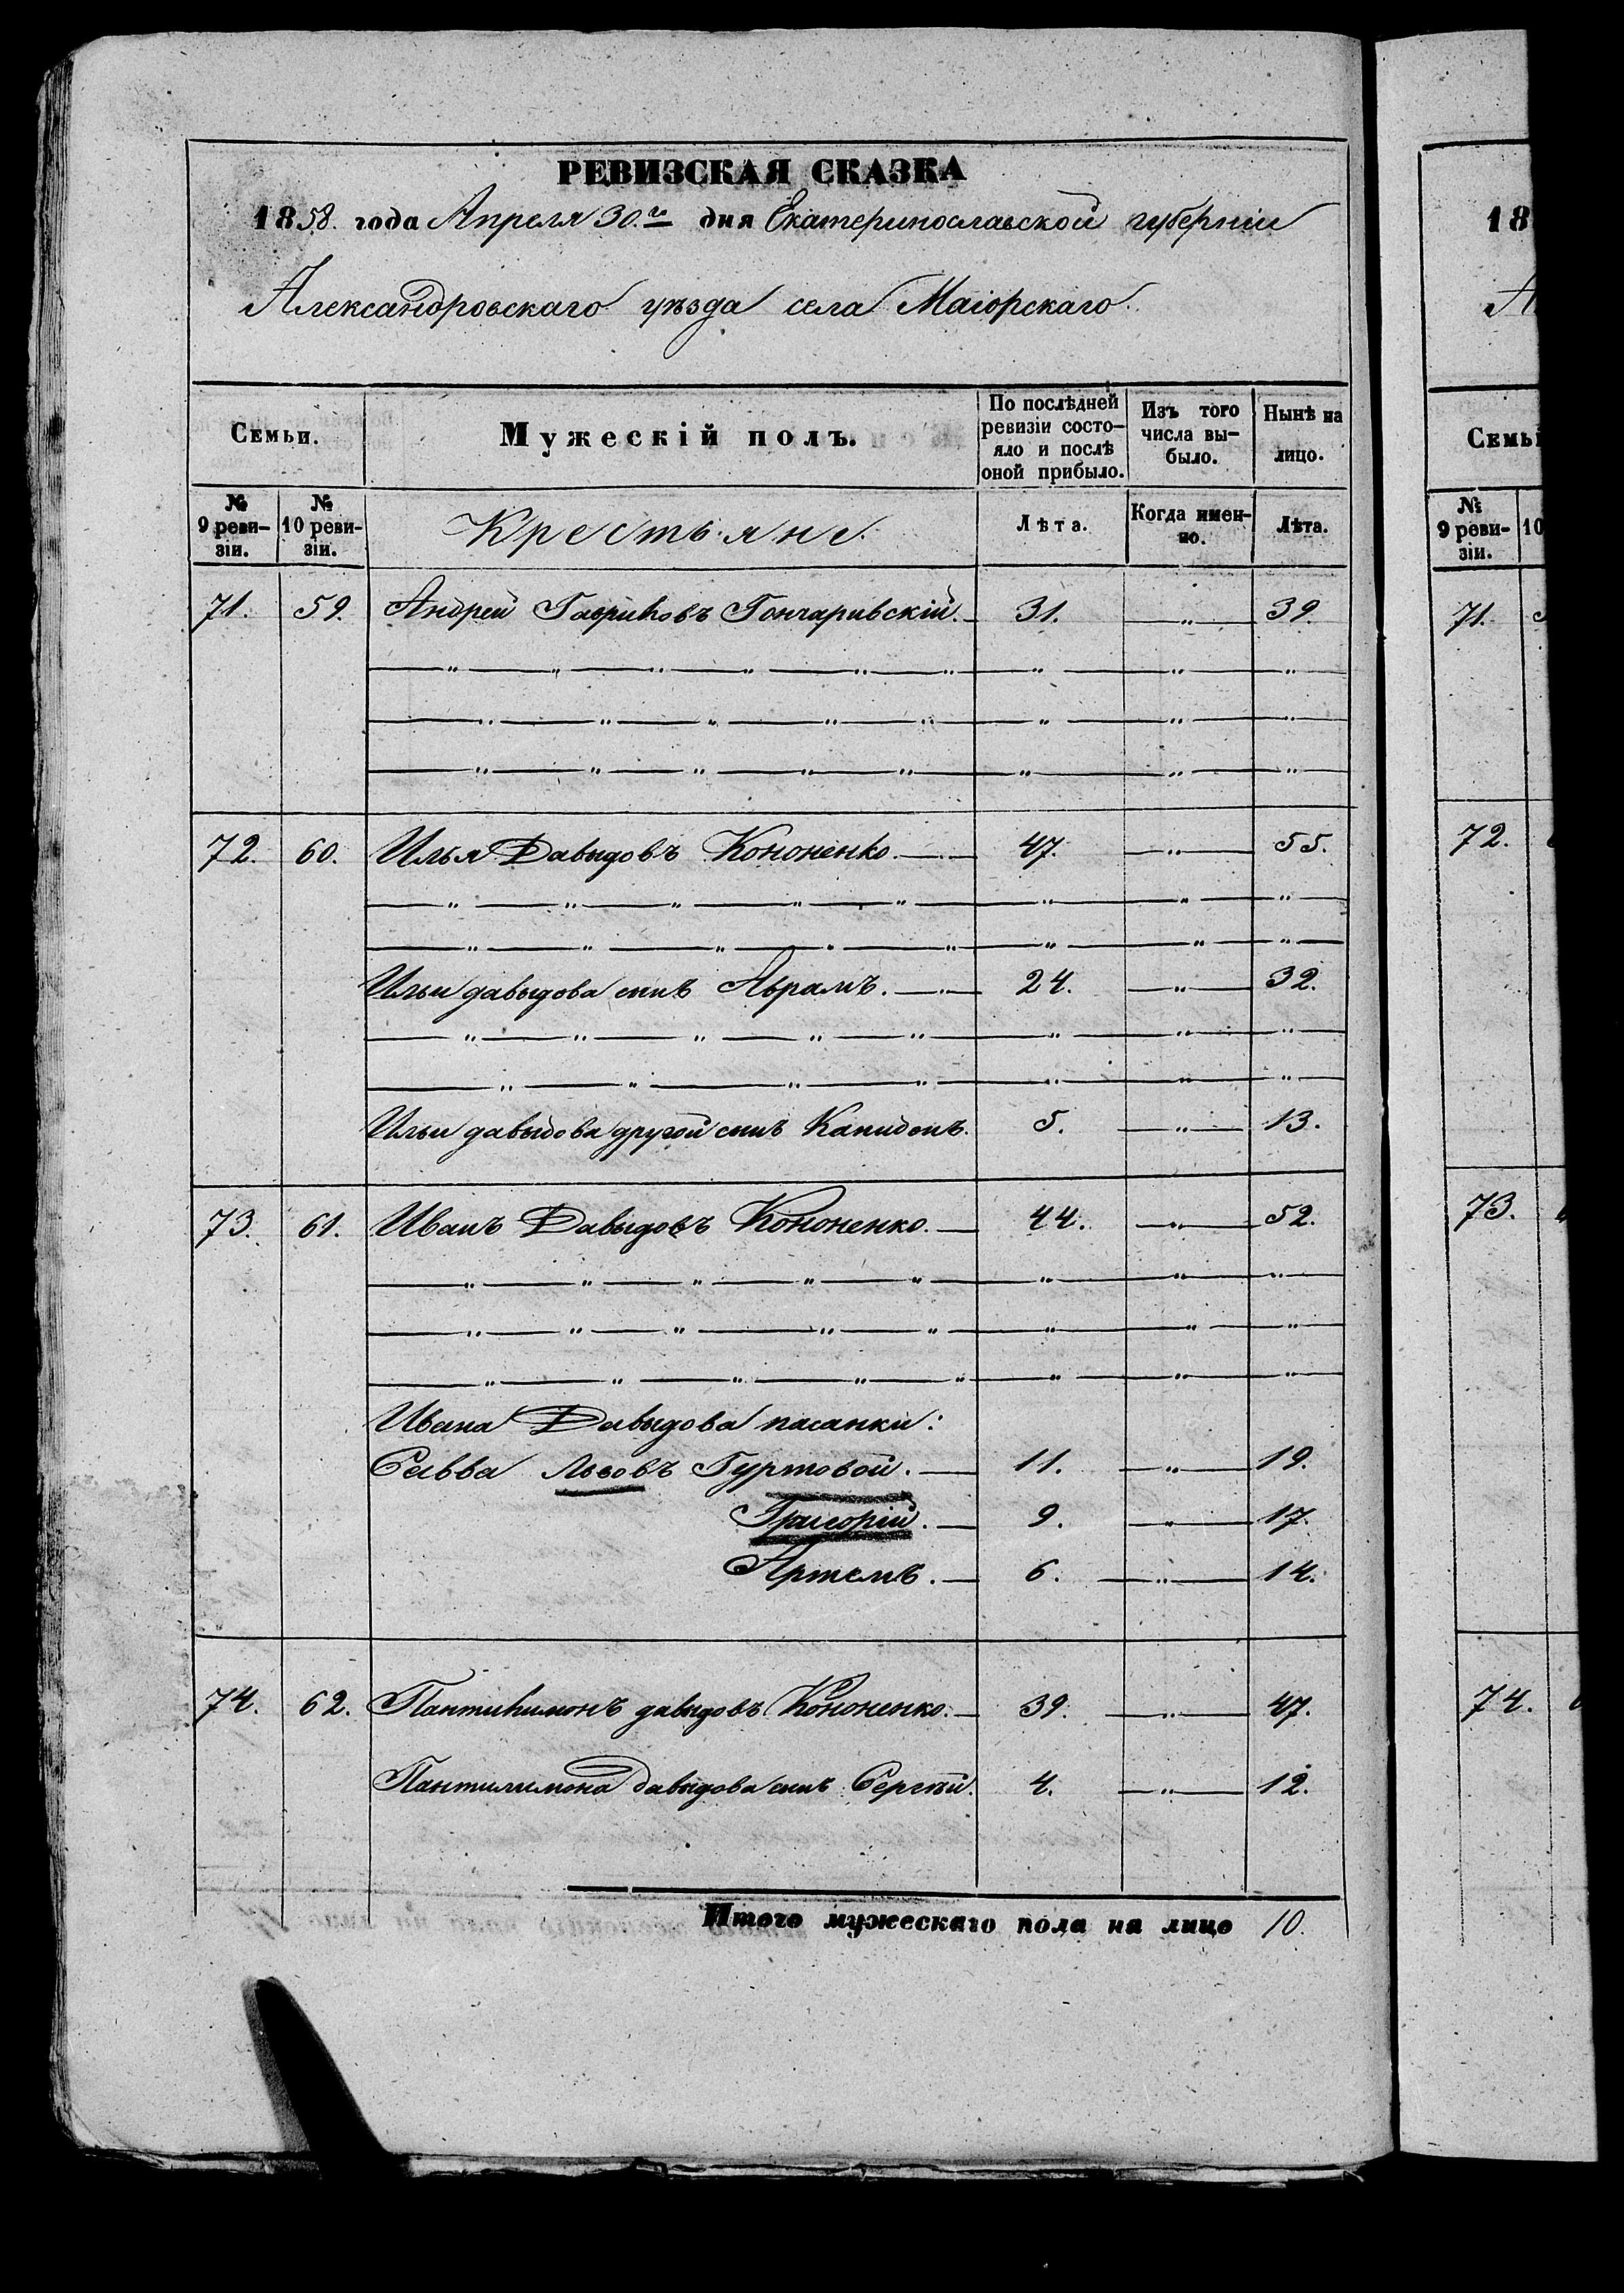 РЕВИЗСКАЯ СКАЗКА
1858. года Апреля 30.го дня Екатеринославской губерніи
Александровскаго уѣзда села Маіорскаго.
Семьи.
Мужескій полъ.
По послѣдней ревизіи состо-
яло и послѣ
оной прибыло.
Изъ того
числа вы-
было.
Нынѣ на
лицо.
№ 9 реви-
зіи.
№ 10 реви-
зіи.
Крестьяне.
Лѣта.
Когда имен-
но.
Лѣта.
71. 59. Андрей Гавриловъ Гончаривскій. 31. " 39.
72. 60. Илья Давыдовъ Кононенко. 47. " 55.
Ильи давыдова сынъ Аврамъ. 24. " 32.
Ильи давыдова другой сынъ Капидонъ. 5. " 13.
73. 61. Иванъ Давыдовъ Кононенко. 44. " 52.
Ивана Давыдова пасанки:
Савва Львовъ Гуртовой. 11. " 19.
Григорій. 9. " 17.
Артемъ. 6. " 14.
74. 62. Пантилимонъ давыдовъ Кононенко. 39. " 47.
Пантилимона давыдова сынъ Сергѣй. 4. " 12.
Итого мужескаго пола на лицо 10.
18
А
Семьи
№ 9 реви-
зіи.
10
71.
72.
73.
74.